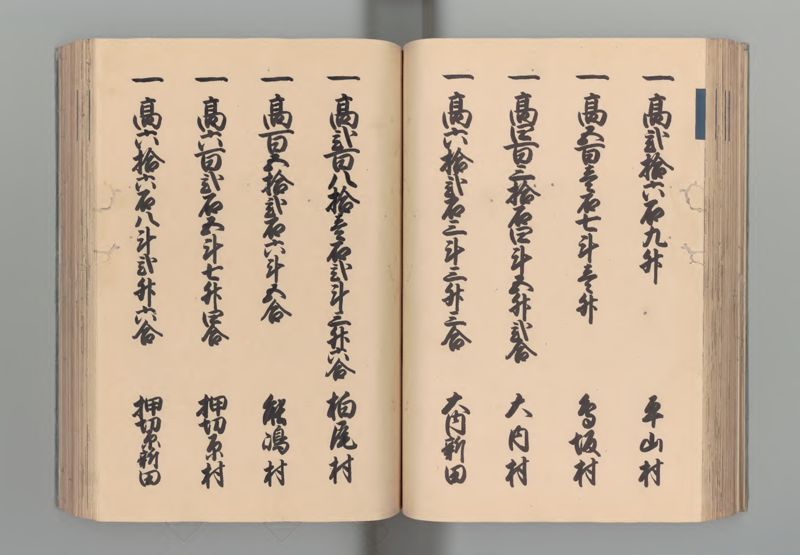 一高弐拾六石九升 平山村
一高五百壱石七斗壱升 鳥坂村
一高四百三拾石四斗五升弐合 大内村
一高六拾弐石三斗三升三合 大内新田
一高弐百八拾壱石弐斗三升六合 柏尾村
一高百五拾弐石六斗五合 能嶋村
一高六百弐石五斗七升四合 押切原村
一高六拾六石八斗弐升六合 押切原新田